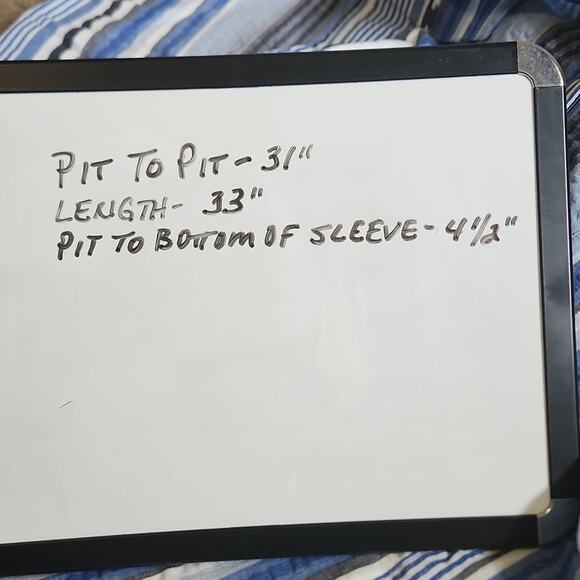 PIT TO PIT - 31"
LENGTH - 33"
PIT TO BOTTOM OF SLEEVE - 4 1/2"